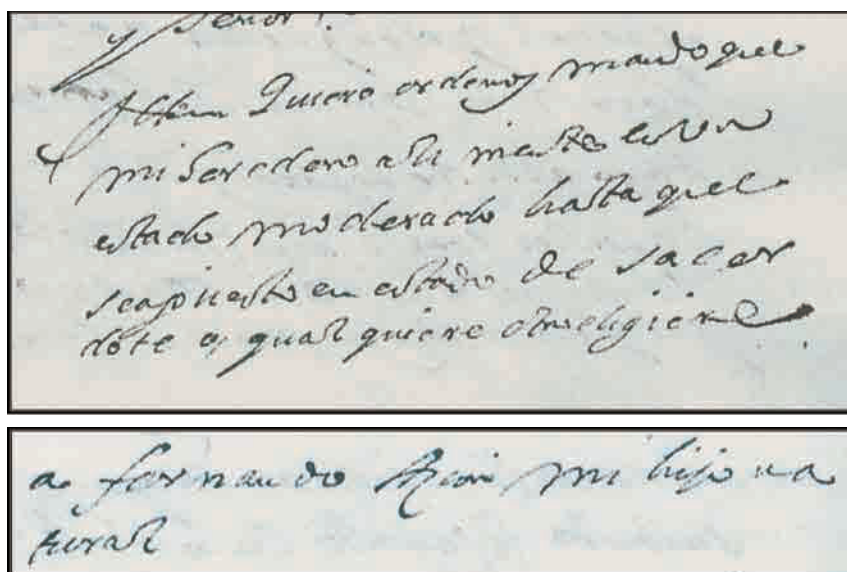 y señor
Ittem Quiero ordeno y mando que
mi heredero alimente en un
estado moderado hasta que
sea puesto en estado de sacer
dote o qual quiere otro eligiere
a fernando mi hijo na
tural